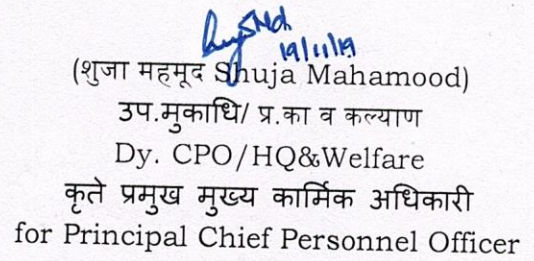 19/11/19
(शुजा महमूद Shuja Mahamood)
उप.मुकाधि/ प्र.का व कल्याण
Dy. CPO/HQ&Welfare
कृते प्रमुख मुख्य कार्मिक अधिकारी
for Principal Chief Personnel Officer